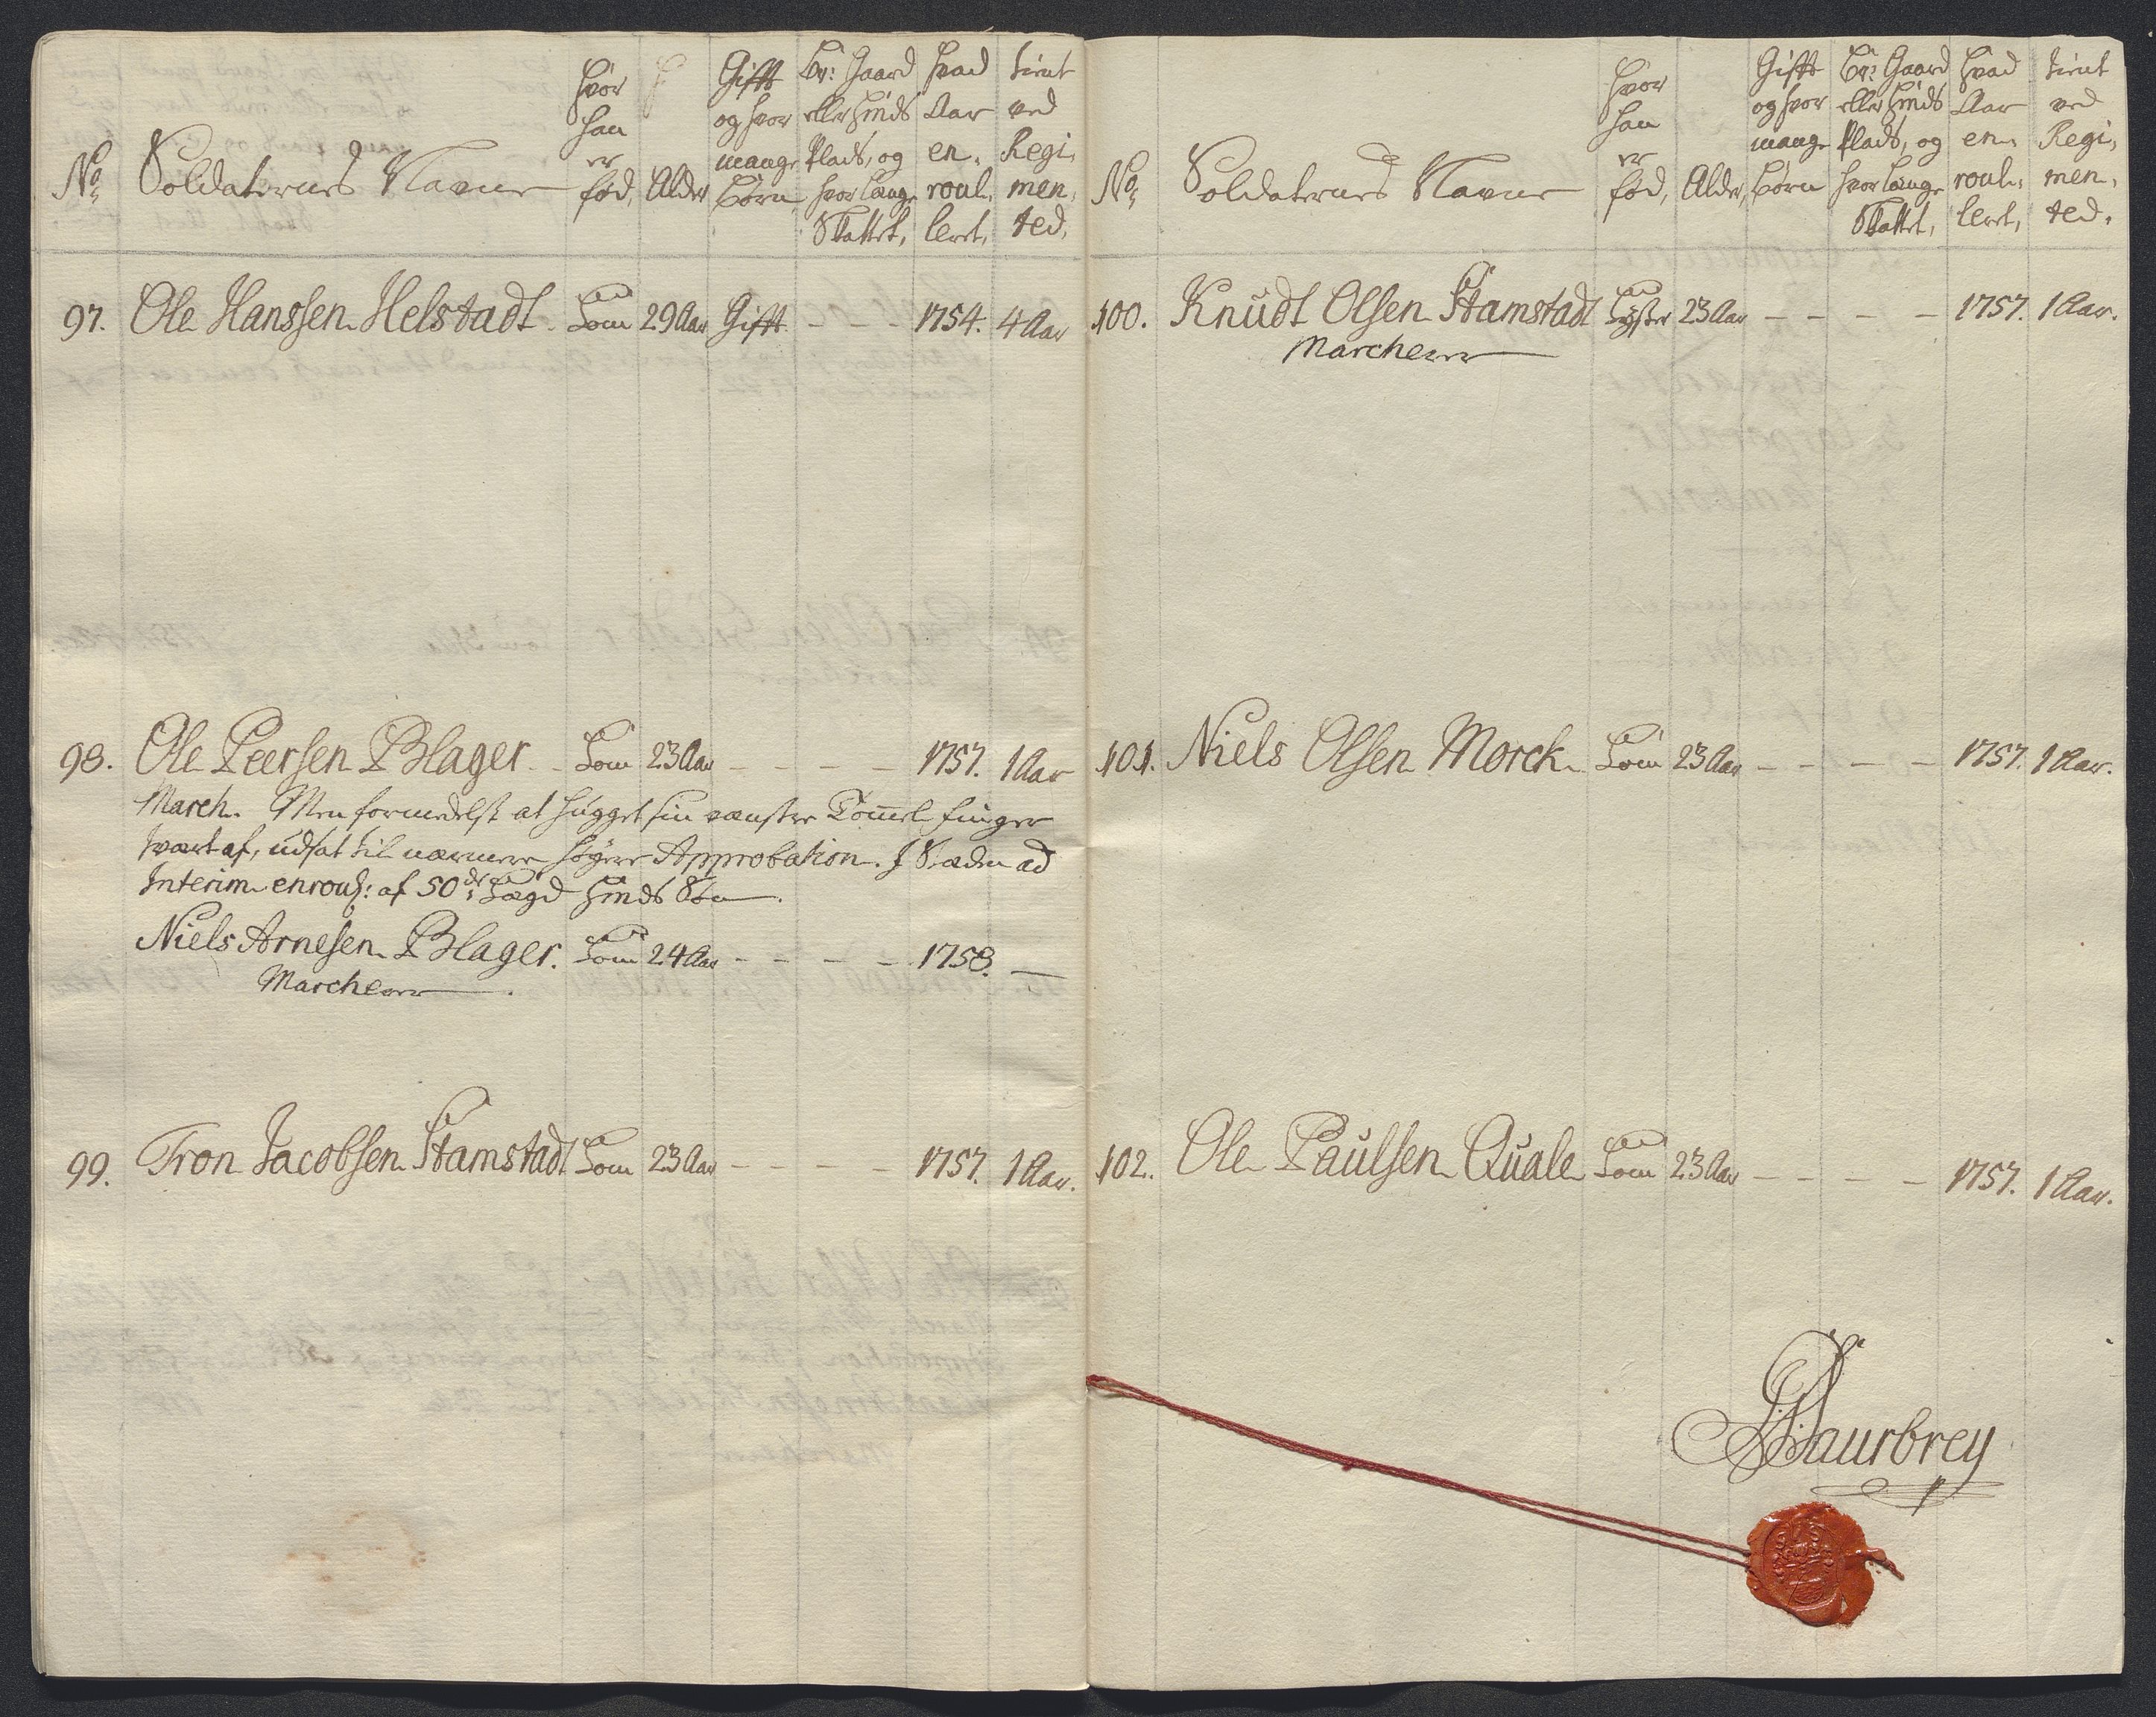 No Soldaternes Navne Hvor han er fød, Alder Gifft og hvor mange Børn Br: Gaard eller Huuds Plads, og hvor længe Skattet, Hvad Aar en, roul, leret, tient ved Regi, men, ted,
97. Ole Hanssen Helstadt Lom 29 Aar Gifft - - - 1754. 4 Aar
98. Ole Peersen Blager Lom 23 Aar - - - - 1757. 1 Aar
March. Men formedelst at hugget sin venstre Tommel finger
tvert af, udsat til nærmere høyere Approbation. I Steden ad
Interim enroul: af 50de Lægd
Niels Arnesen Blager. Lom 24 Aar - - - - 1758. —
Marcherer
99. Tron Jacobsen Stamstadt Lom 23 Aar - - - - 1757. 1 Aar.
No Soldaternes Navne Hvor han er fød, Alder, Gifft og hvor mange Børn Br: Gaard eller Huuds Plads, og hvor længe Skattet, Hvad Aar en, roul, leret, tient ved Regi, men, ted,
100. Knudt Olsen Stamstadt Lyster 23 Aar - - - - 1757. 1 Aar.
Marcherer
101. Niels Olsen Morck Lom 23 Aar - - - - 1757. 1 Aar.
102. Ole Paulsen Quale Lom 23 Aar - - - - 1757. 1 Aar.
Saurbrey